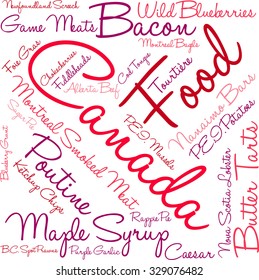 Newfoundland Screech
Wild Blueberries
Game Meats
Bacon
Montreal Bagels
Foie Gras
Cloudberries
Fiddleheads
Alberta Beef
Cod Tongue
Tourtière
Food
Canada
Nanaimo Bars
P.E.I. Potatoes
P.E.I. Mussels
Montreal Smoked Meat
Sugar Pie
Blueberry Grunt
Ketchup Chips
Poutine
Rappie Pie
Maple Syrup
Nova Scotia Lobster
Butter Tarts
B.C. Spot Prawns
Purple Garlic
Caesar
www.shutterstock.com · 329076482